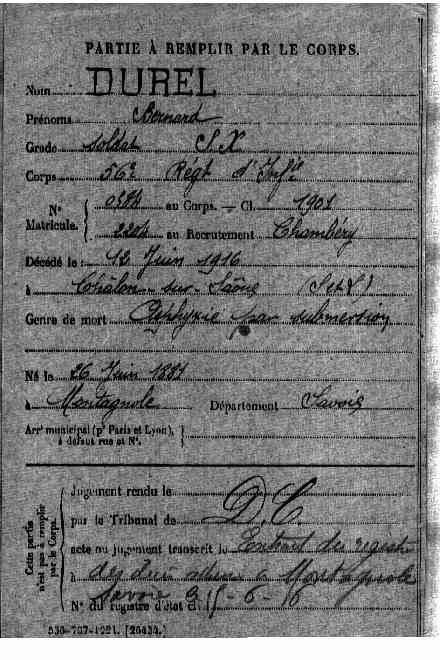 PARTIE À REMPLIR PAR LE CORPS.
Nom DUREL
Prénoms Bernard
Grade soldat
Corps 56e Régt d'Infie
N° Matricule. { au Corps. — Cl. 1901
au Recrutement Chambéry
Décédé le : 12 Juin 1916
à Châlon-sur-Saône (S et L)
Genre de mort Asphyxie par submersion
Né le 26 Juin 1881
à Montagnole Département Savoie
Arrt municipal (pr Paris et Lyon), à défaut rue et N°. }
Cette partie n'est pas à remplir par le Corps.
Jugement rendu le
par le Tribunal de D.C.
acte ou jugement transcrit le Extrait des registres
à Montagnole
Savoie
N° du registre d'état